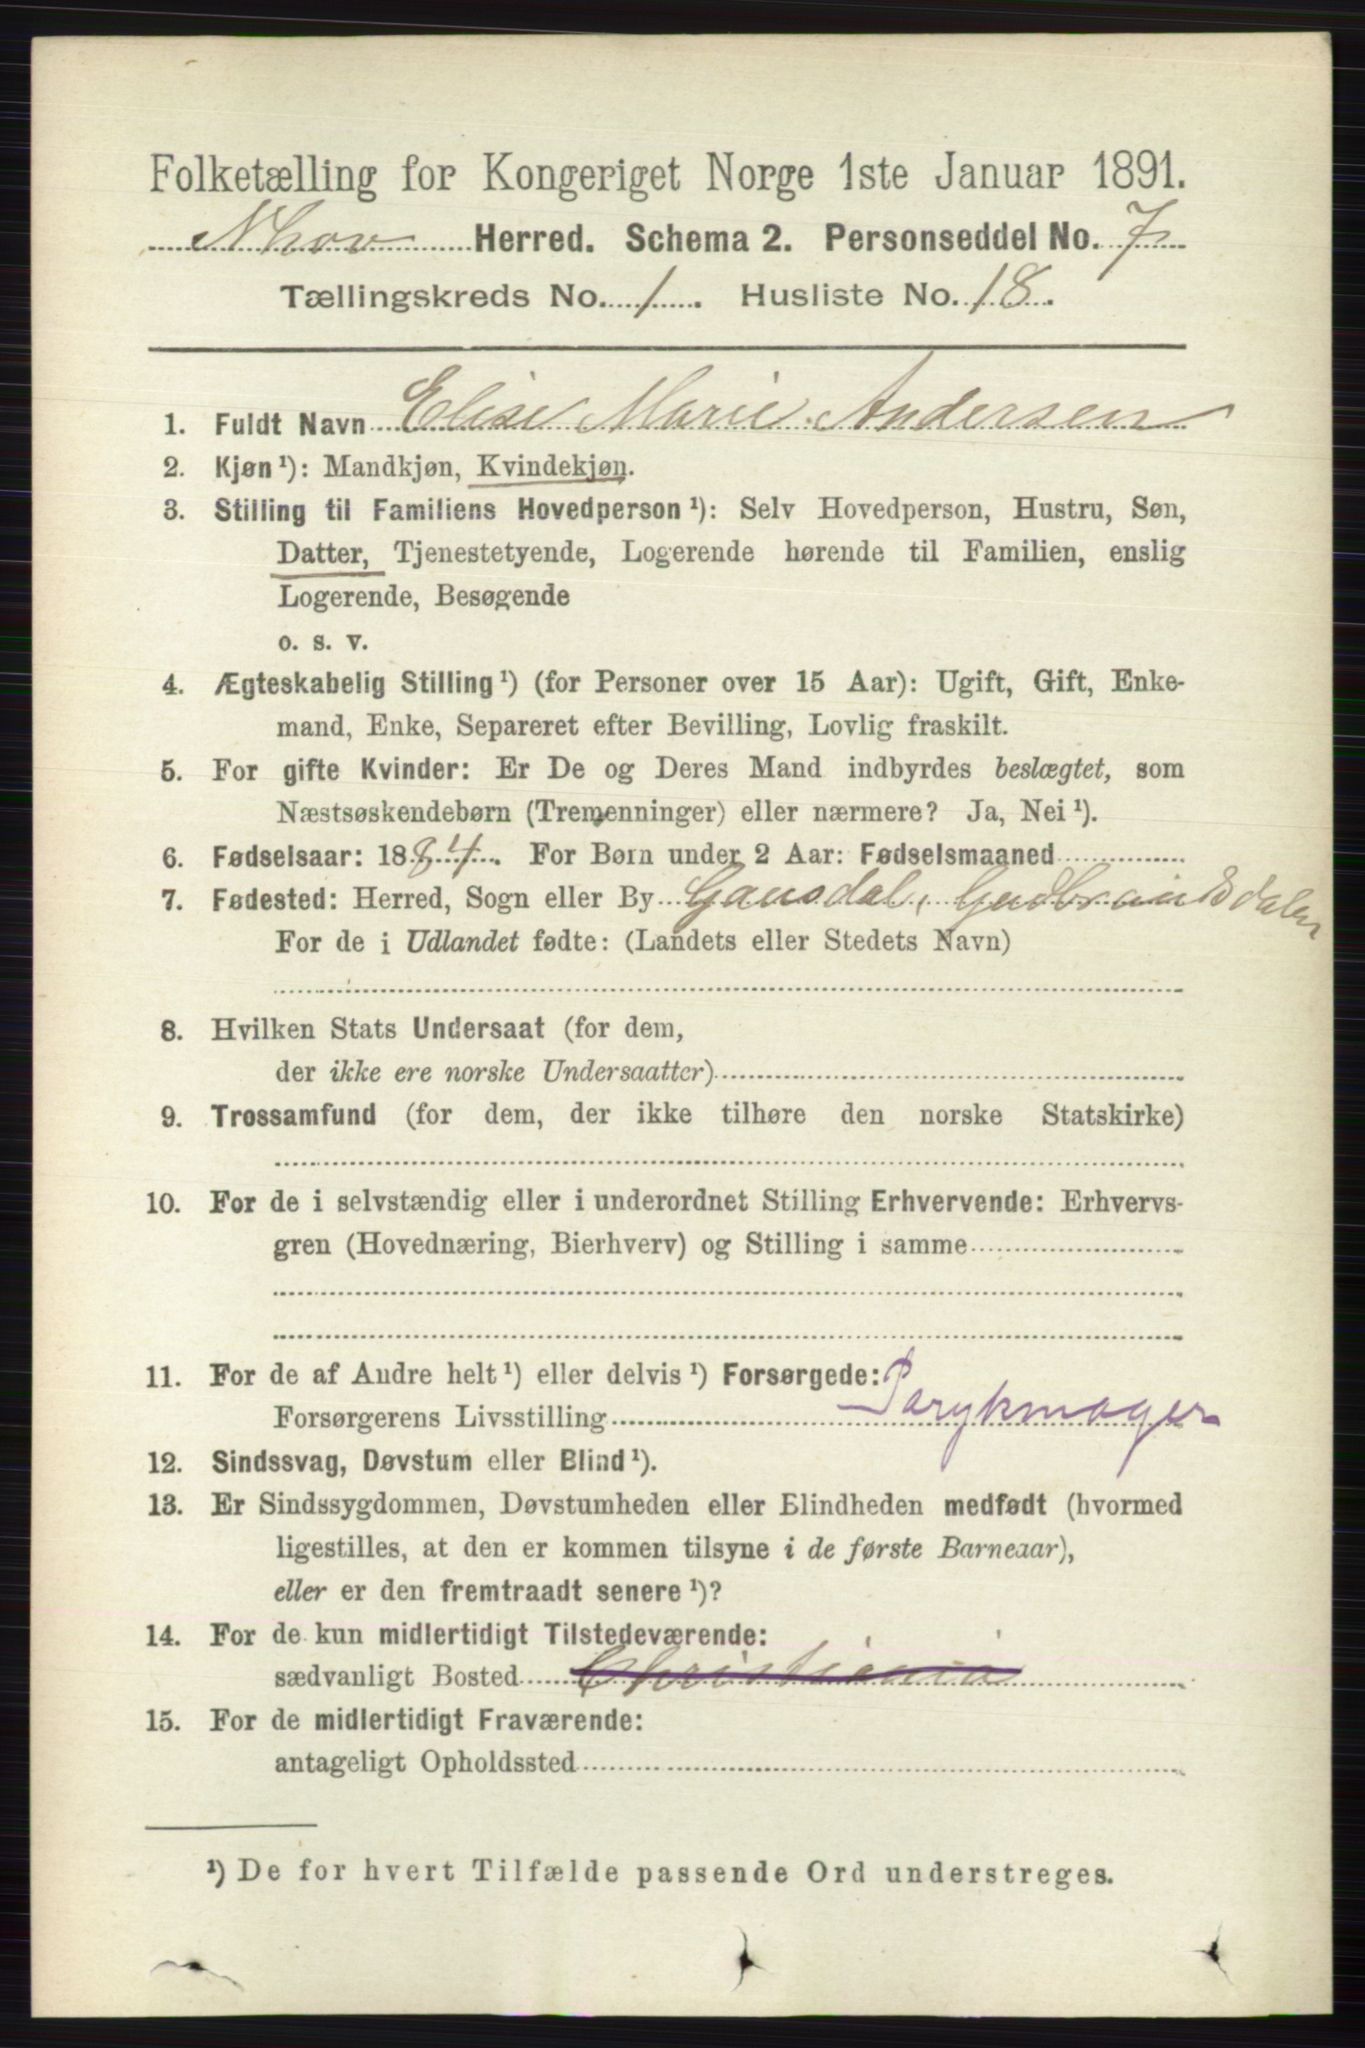 Folketælling for Kongeriget Norge 1ste Januar 1891.
Herred. Schema 2. Personseddel No. 7
Tællingskreds No. 1. Husliste No. 18.
1. Fuldt Navn Elise Marie Andersen
2. Kjøn¹): Mandkjøn, Kvindekjøn.
3. Stilling til Familiens Hovedperson¹): Selv Hovedperson, Hustru, Søn,
Datter, Tjenestetyende, Logerende hørende til Familien, enslig
Logerende, Besøgende
o. s. v.
4. Ægteskabelig Stilling¹) (for Personer over 15 Aar): Ugift, Gift, Enke-
mand, Enke, Separeret efter Bevilling, Lovlig fraskilt.
5. For gifte Kvinder: Er De og Deres Mand indbyrdes beslægtet, som
Næstsøskendebørn (Tremenninger) eller nærmere? Ja, Nei¹).
6. Fødselsaar: 1884. For Børn under 2 Aar: Fødselsmaaned
7. Fødested: Herred, Sogn eller By Gausdal, Gudbrandsdalen
For de i Udlandet fødte: (Landets eller Stedets Navn)
8. Hvilken Stats Undersaat (for dem,
der ikke ere norske Undersaatter)
9. Trossamfund (for dem, der ikke tilhøre den norske Statskirke)
10. For de i selvstændig eller i underordnet Stilling Erhvervende: Erhvervs-
gren (Hovednæring, Bierhverv) og Stilling i samme
11. For de af Andre helt¹) eller delvis¹) Forsørgede:
Forsørgerens Livsstilling Parykmager
12. Sindssvag, Døvstum eller Blind¹).
13. Er Sindssygdommen, Døvstumheden eller Blindheden medfødt (hvormed
ligestilles, at den er kommen tilsyne i de første Barneaar),
eller er den fremtraadt senere¹)?
14. For de kun midlertidigt Tilstedeværende:
sædvanligt Bosted Christiania
15. For de midlertidigt Fraværende:
antageligt Opholdssted
¹) De for hvert Tilfælde passende Ord understreges.